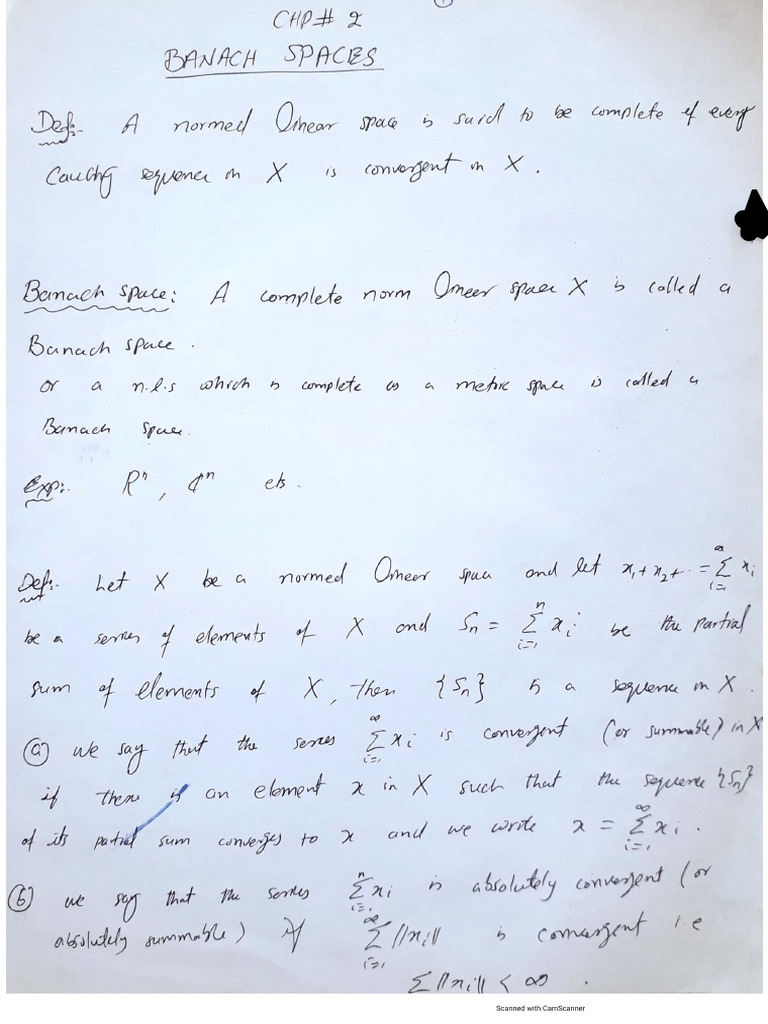 CHP# 2
BANACH SPACES
Def:- A normed linear space is said to be complete if every
Cauchy sequence in X is convergent in X.
Banach space: A complete norm linear space X is called a
Banach space.
or a n.l.s which is complete as a metric space is called a
Banach space.
Exp:. Rⁿ, ₵ⁿ etc.
Def:- Let X be a normed linear space and let x₁+x₂+.. = ∞∑i=1 xᵢ
be a series of elements of X and Sₙ = n∑i=1 xᵢ be the partial
sum of elements of X, then {Sₙ} is a sequence in X.
(a) we say that the series ∞∑i=1 xᵢ is convergent (or summable) in X
if there is an element x in X such that the sequence {Sₙ}
of its partial sum converges to x and we write x = ∞∑i=1 xᵢ.
(b) we say that the series n∑i=1 xᵢ is absolutely convergent (or
absolutely summable) if ∞∑i=1 ||xᵢ|| is convergent i.e
∑||xᵢ|| < ∞.
Scanned with CamScanner